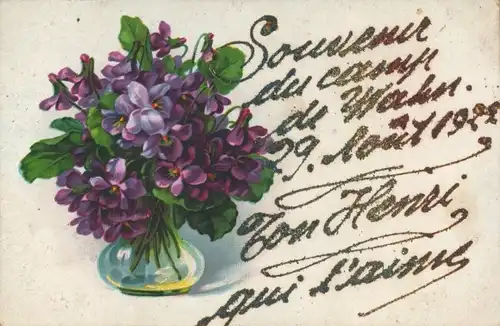 Souvenir
du camp
de Wahn.
29. Août 1922
Ton Henri
qui t'aime